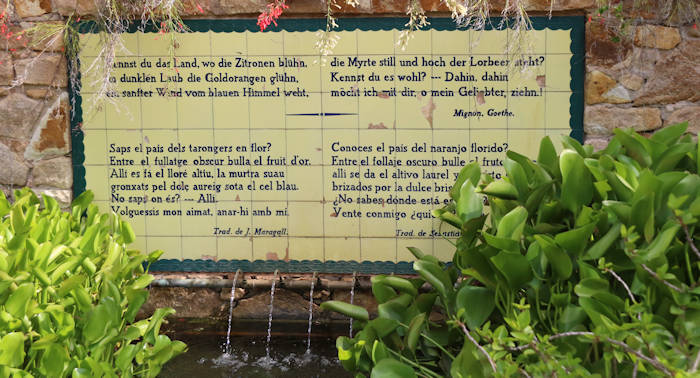 Kennst du das Land, wo die Zitronen blühn.
dunklen Laub die Goldorangen glühn,
sanfter Wind vom blauen Himmel weht,
die Myrte still und hoch der Lorbeer steht?
Kennst du es wohl? --- Dahin, dahin
möcht ich mit dir, o mein Geliebter, ziehn!
Mignon, Goethe.
Saps el país dels tarongers en flor?
Entre el fullatge obscur bulla el fruit d'or.
Allí es fá el lloré altiu, la murtra suau
gronxats pel dolç aureig sota el cel blau.
No saps on és? --- Allí.
Volguessis mon aimat, anar-hi amb mí.
Trad. de J. Maragall.
Conoces el país del naranjo florido?
Entre el follaje oscuro bulle el fruto
allí se da el altivo laurel
brizados por la dulce
¿No sabes dónde está
Vente conmigo
Trad. de